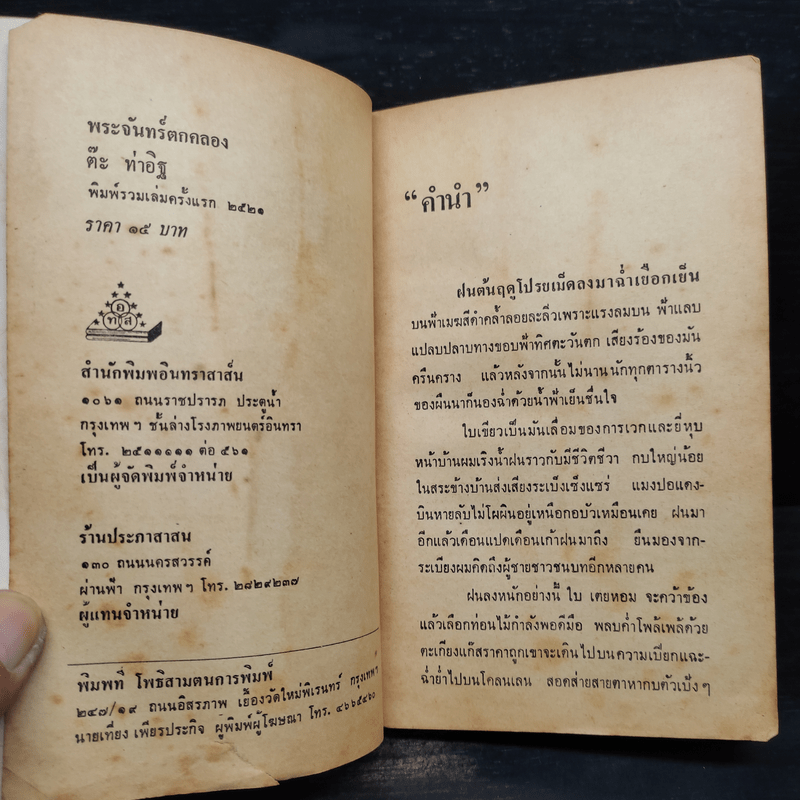 พระจันทร์ตกคลอง
ต๊ะ ท่าอิฐ
พิมพ์รวมเล่มครั้งแรก ๒๕๒๑
ราคา ๑๕ บาท
อ
ท ส
สำนักพิมพอินทราสาส์น
๑๐๖๑ ถนนราชปรารภ ประตูน้ำ
กรุงเทพฯ ชั้นล่างโรงภาพยนตร์อินทรา
โทร. ๒๕๑๑๑๑๑ ต่อ ๕๖๑
เป็นผู้จัดพิมพ์จำหน่าย
ร้านประภาสาสน
๑๓๐ ถนนนครสวรรค์
ผ่านฟ้า กรุงเทพฯ โทร. ๒๘๒๙๒๓๗
ผู้แทนจำหน่าย
พิมพที่ โพธิ์สามตนการพิมพ์
๒๔๗/๑๙ ถนนอิสรภาพ เยื้องวัดใหม่พิเรนทร์ กรุงเทพฯ
นายเที่ยง เพียรประกิจ ผู้พิมพ์ผู้โฆษณา โทร. ๔๖๖๕๔๖๐
“คำนำ”
ฝนต้นฤดูโปรยเม็ดลงมาฉ่ำเยือกเย็น
บนฟ้าเมฆสีดำคล้ำลอยละลิ่วเพราะแรงลมบน ฟ้าแลบ
แปลบปลาบทางขอบฟ้าทิศตะวันตก เสียงร้องของมัน
ครืนคราง แล้วหลังจากนั้นไม่นานนักทุกตารางนิ้ว
ของผืนนาก็นองฉ่ำด้วยน้ำฟ้าเย็นชื่นใจ
ใบเขียวเป็นมันเลื่อมของการเวกและยี่หุบ
หน้าบ้านผมเริงน้ำฝนราวกับมีชีวิตชีวา กบใหญ่น้อย
ในสระข้างบ้านส่งเสียงระเบ็งเซ็งแซ่ร์ แมงปอแดง-
บินหายลับไม่โผผินอยู่เหนือกอบัวเหมือนเคย ฝนมา
อีกแล้วเดือนแปดเดือนเก้าฝนมาถึง ยืนมองจาก-
ระเบียงผมคิดถึงผู้ชายชาวชนบทอีกหลายคน
ฝนลงหนักอย่างนี้ ใบ เตยหอม จะคว้าข้อง
แล้วเลือกท่อนไม้กำลังพอดีมือ พลบค่ำโพล้เพล้ด้วย
ตะเกียงแก๊สราคาถูกเขาจะเดินไปบนความเปียกแฉะ-
ฉ่ำย่ำไปบนโคลนเลน สอดส่ายสายตาหากบตัวเป้งๆ